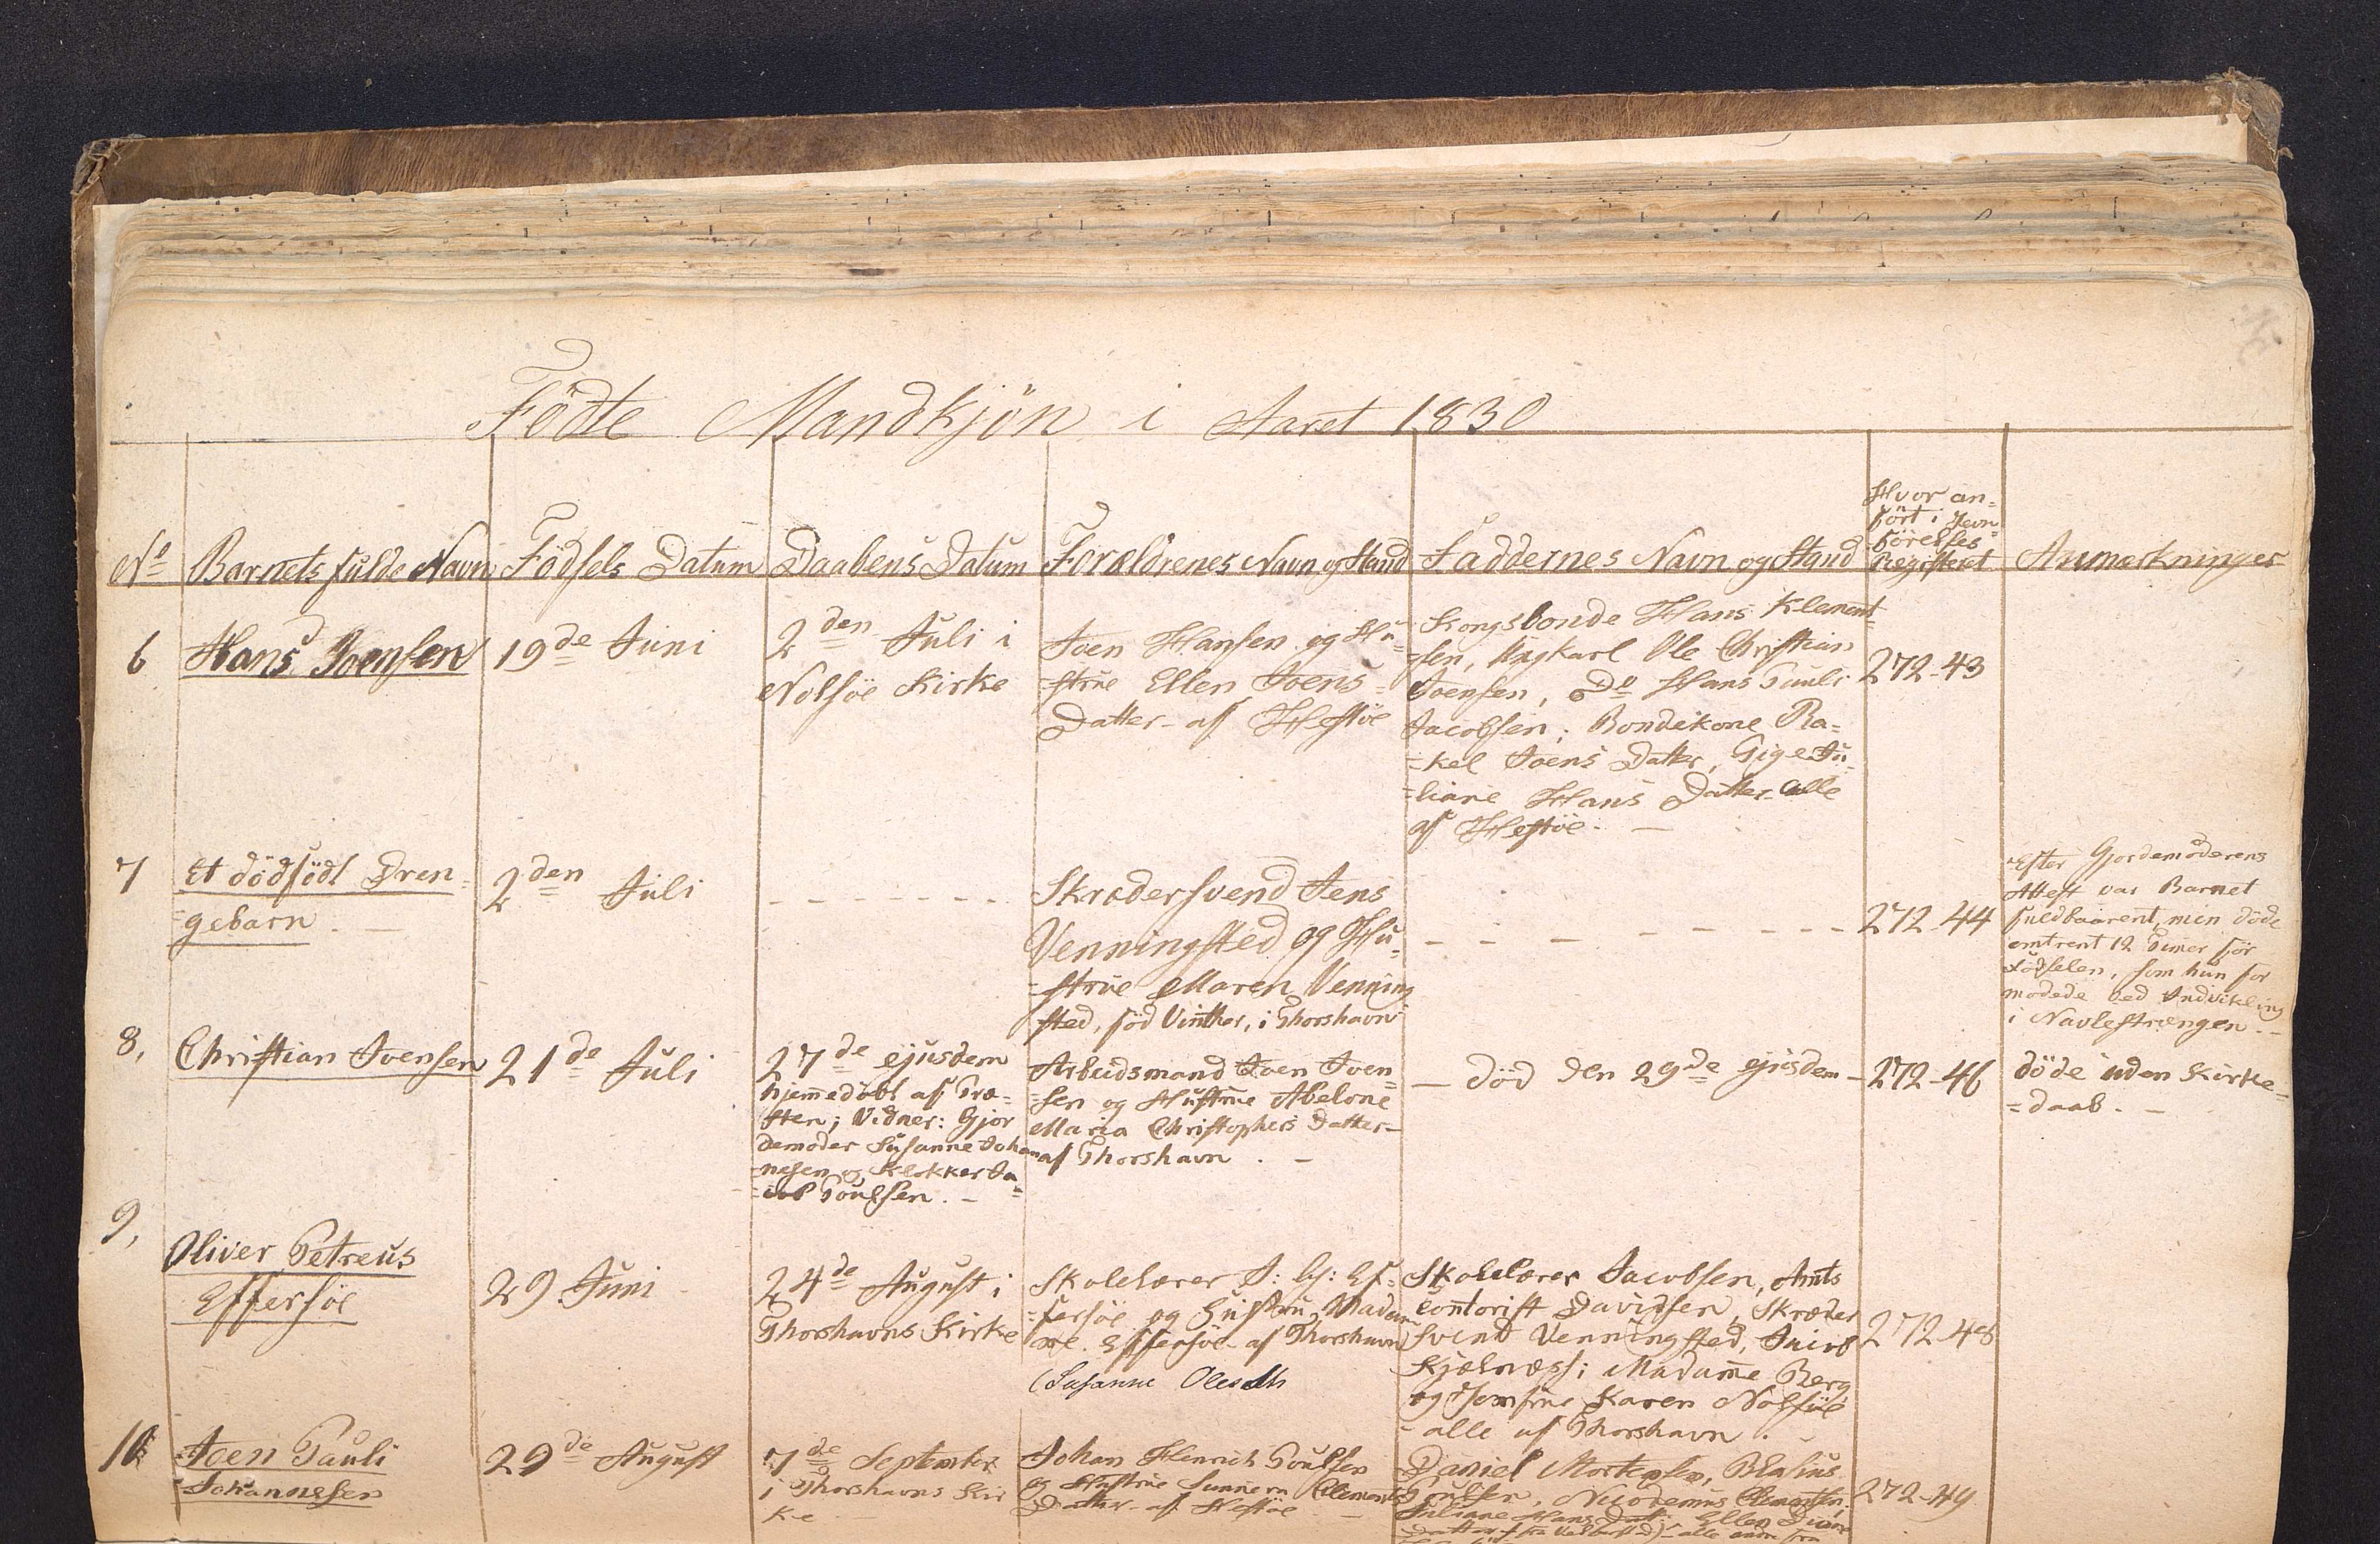 Födte Mandkjön i Aaret 1830
No
Barnets fulde Navn
Födsels Datum
Daabens Datum
Forældrenes Navn og Stand
Faddernes Navn og Stand
Hvor an=
fört i Jevn
förelses
Registeret
Anmærkninger
6
Hans Joensen
19de Juni
2den Juli i
Nolsöe Kirke
Joen Hansen og Hu=
=strue Ellen Joens=
Datter - af Hestöe
Kongsbonde Hans Klement
=sen, Ungkarl Ole Christian
Joensen, Do Hans Pauli
Jacobsen; Bondekone Ra=
=kel Joens Datter, Pige Ju=
=liane Hans Datter - alle
af Hestöe. -
272-43
7
Et dödfödt Dren=
=gebarn. -
2den Juli
- - - - - - -
Skrædersvend Jens
Venningsted og Hu=
=strue Maren Venning
sted, föd Vinther, i Thorshavn
- - - - - - - -
272-44
Efter Gjordemoderens
Attest var Barnet
fuldbaarent, men döde
omtrent 12 Timer för
Födselen, som hun for
modede ved Indvikling
i Navlestrængen. -
8,
Christian Joensen
21de Juli
27de ejusdem
hjemedöbt af Præ=
sten; Vidner: Gjor
demoder Susanne Johan
=nesen og Klokker Ja=
=cob Poulsen. -
Arbeidsmand Joen Joen=
=sen og Hustrue Abelone
Maria Christophers Datter -
af Thorshavn. -
- död den 29de ejusdem -
272-46
döde uden Kirke=
=daab. -
9,
Oliver Petreus
Effersöe
29 Juni
24de August i
Thorshavns Kirke
Skolelærer J: Ef=
=fersöe og Hustru, Madam
me Effersöe - af Thorshavn
(Susanne Olesdtr
Skolelærer Jacobsen, Amts
contorist Davidsen, Skræder
svend Venningsted, Jacob
Kjelnæs; Madame Berg
og Jomfrue Karen Nolsöe
- alle af Thorshavn. -
272-48
10
Joen Pauli
Johannesen
29de August
7de September
i Thorshavns Kir
ke -
Johan Henrich Poulsen
og Hustrue Sunneva Clements
Datter - af Hestöe -
Daniel Mortensen, Blasius
Poulsen, Nicodemus Clementsen,
Juliane Hans Dat: Ellen
272-49